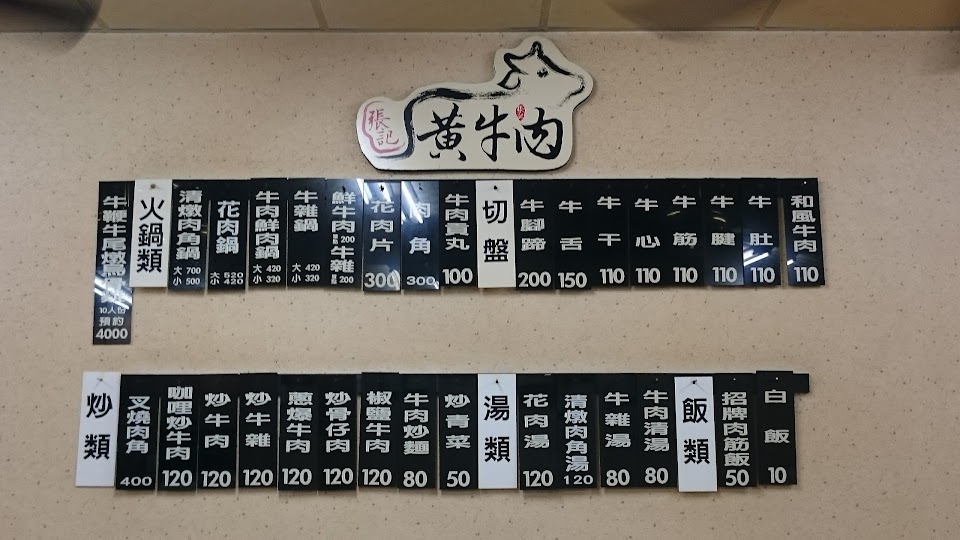 張記
黃牛肉
和風牛肉 110
牛肚 110
牛腱 110
牛筋 110
牛心 110
牛干 110
牛舌 150
牛腳蹄 200
切盤
牛肉貢丸 100
肉角 300
花肉片 300
鮮牛肉 200 牛雜 200
牛雜鍋 大 420 小 320
牛肉鮮肉鍋 大 420 小 320
花肉鍋 大 520 小 420
清燉肉角鍋 大 700 小 500
火鍋類
牛鞭牛尾燉 10人份 預約 4000
白飯 10
招牌肉筋飯 50
飯類
牛肉清湯 80
牛雜湯 80
清燉肉角湯 120
花肉湯 120
湯類
炒青菜 50
牛肉炒麵 80
椒鹽牛肉 120
炒骨仔肉 120
蔥爆牛肉 120
炒牛雜 120
炒牛肉 120
咖哩炒牛肉 120
叉燒肉角 400
炒類